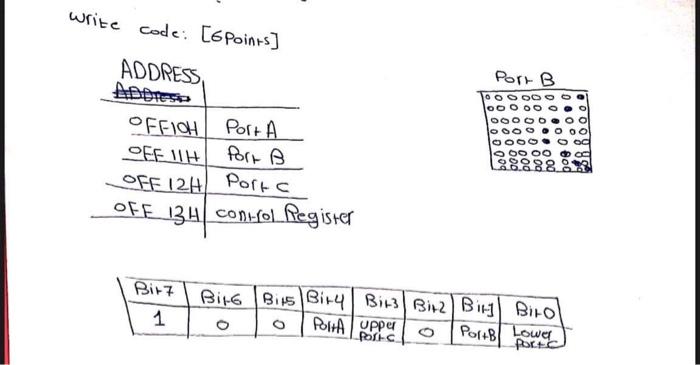 Write code: [6Points]
ADDRESS
Address
OFF10H Port A
OFF 11H Port B
OFF 12H Port C
OFF 13H control Register
Port B
Bit7 Bit6 Bit5 Bit4 Bit3 Bit2 Bit1 Bit0
1 0 0 PortA upper Port-C 0 Port-B Lower Port-C